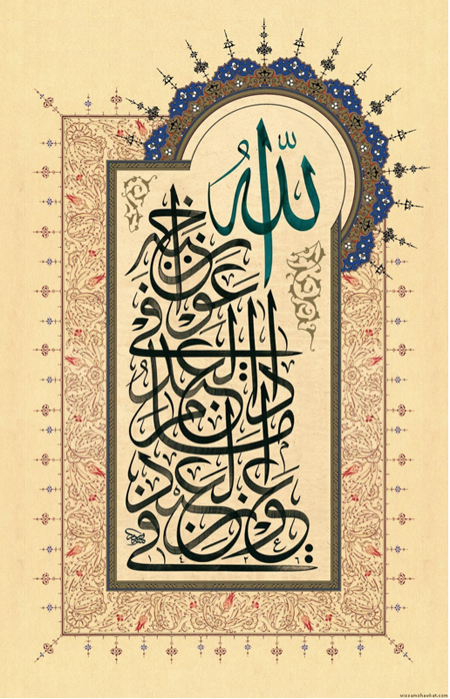 الله
في عون العبد
ما دام العبد
في عون أخيه
wissamshawkat.com